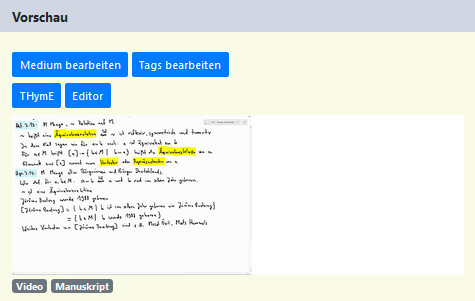 Vorschau
Medium bearbeiten Tags bearbeiten
THymE Editor
M Menge, ~ Relation auf M
~ heißt eine Äquivalenzrelation ~ ist reflexiv, symmetrisch und transitiv
In dem Fall sagen wir für a~b auch: a ist äquivalent zu b
Für a∈M heißt [a] = {b∈M | b~a} heißt die Äquivalenzklasse von a
Element aus [a] nennt man Vertreter oder Repräsentanten von a
M Menge aller Bürgerinnen und Bürger Deutschlands.
a und b sind im selben Jahr geboren.
~ ist eine Äquivalenzrelation
Jérôme Boateng wurde 1988 geboren
[Jérôme Boateng] = { b∈M | b ist im selben Jahr geboren wie Jérôme Boateng}
= {b∈M | b wurde 1988 geboren}
Weitere Vertreter von [Jérôme Boateng] sind z.B. Mesut Özil, Mats Hummels
Video Manuskript